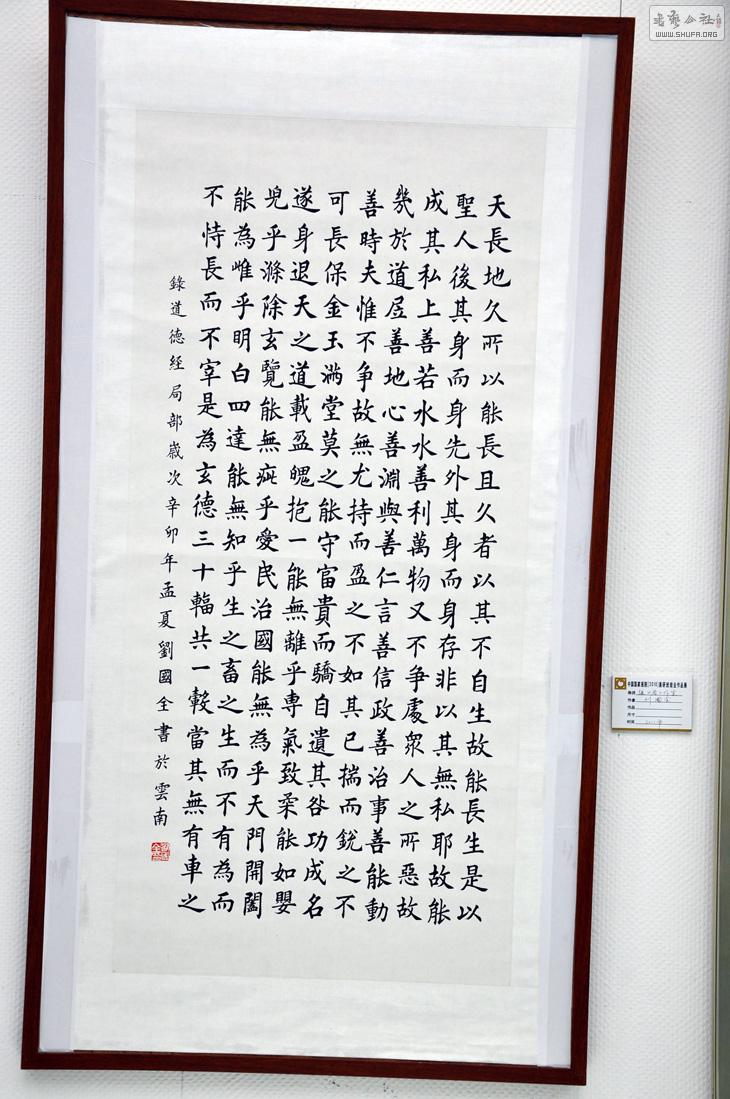 天長地久所以能長且久者以其不自生故能長生是以
聖人後其身而身先外其身而身存非以其無私耶故能
成其私上善若水水善利萬物又不争處衆人之所惡故
幾於道居善地心善淵與善仁言善信政善治事善能動
善時夫惟不争故無尤持而盈之不如其已揣而銳之不
可長保金玉滿堂莫之能守富貴而驕自遺其咎功成名
遂身退天之道載盈魄抱一能無離乎專氣致柔能如嬰
兒乎滌除玄覽能無疵乎愛民治國能無為乎天門開闔
能為雌乎明白四達能無知乎生之畜之生而不有為而
不恃長而不宰是為玄德三十輻共一轂當其無有車之
錄道德經局部歲次辛卯年孟夏劉國全書於雲南
WWW.SHUFA.ORG